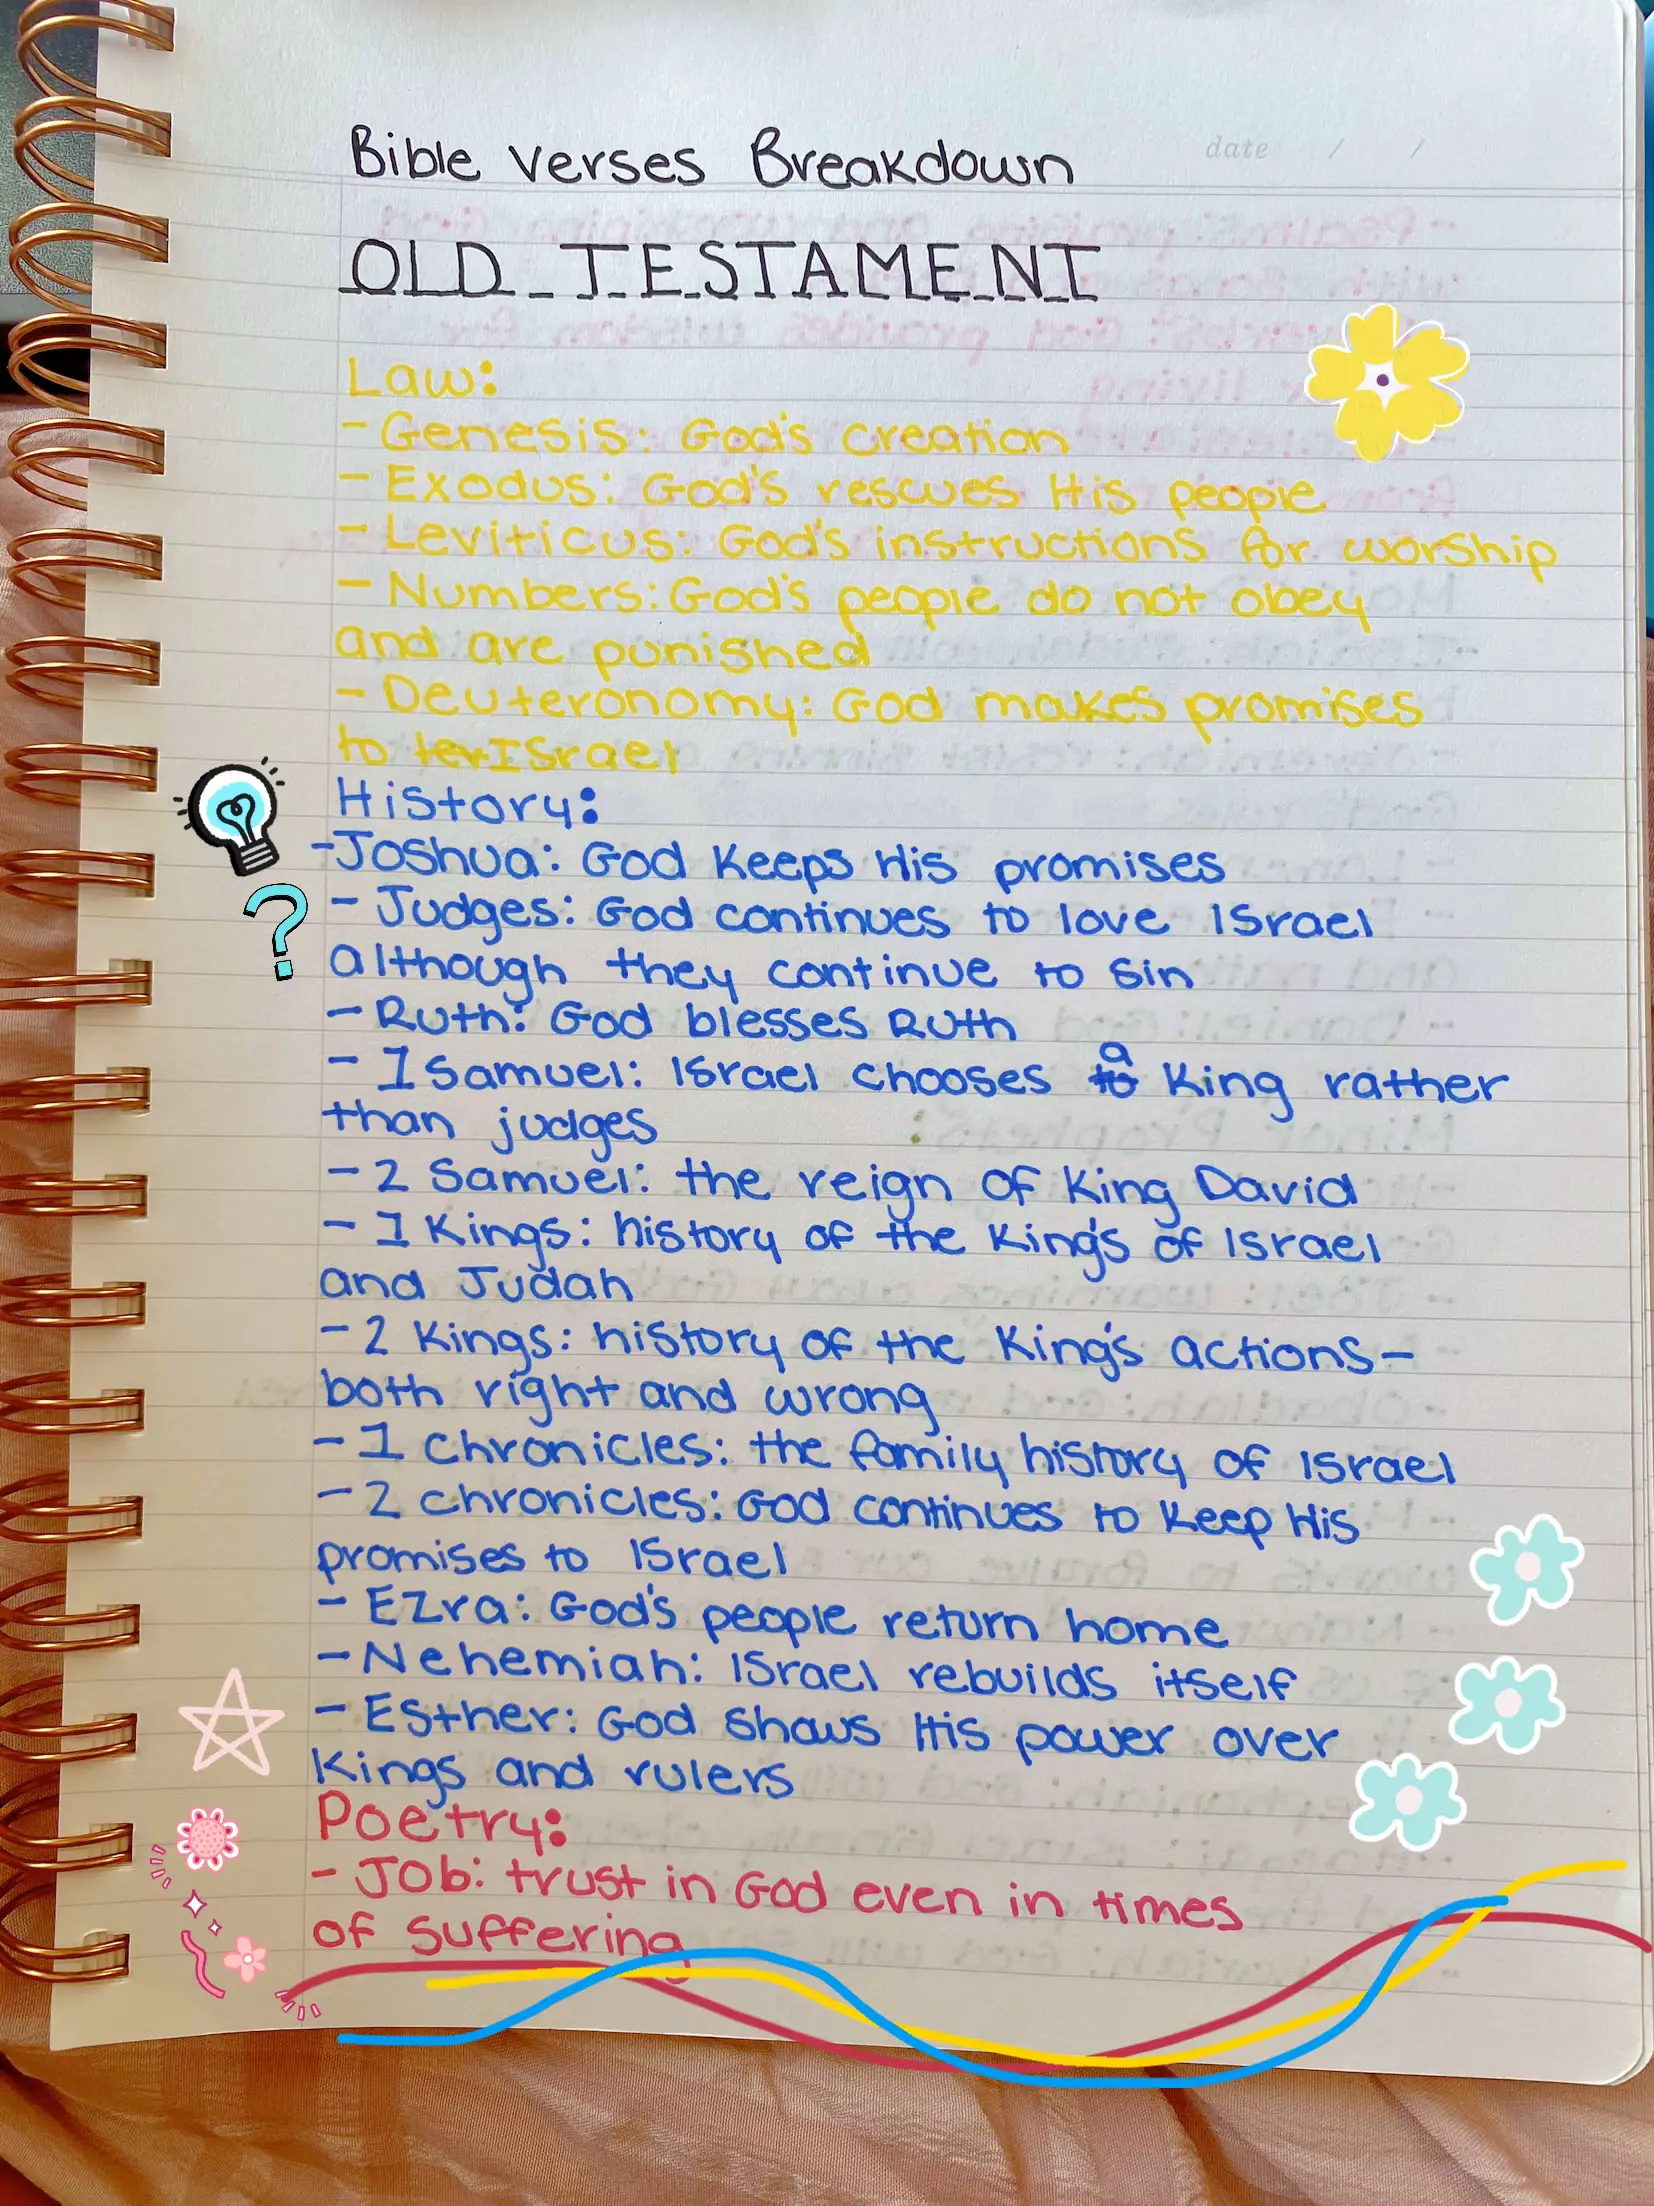 Bible Verses Breakdown
date / /
OLD TESTAMENT
Law:
- Genesis: God's creation
- Exodus: God's rescues His people
- Leviticus: God's instructions for worship
- Numbers: God's people do not obey
and are punished
- Deuteronomy: God makes promises
to Israel
History:
- Joshua: God keeps His promises
- Judges: God continues to love Israel
although they continue to sin
- Ruth: God blesses Ruth
- 1 Samuel: Israel chooses a King rather
than judges
- 2 Samuel: the reign of King David
- 1 Kings: history of the King's of Israel
and Judah
- 2 Kings: history of the King's actions-
both right and wrong
- 1 chronicles: the family history of Israel
- 2 chronicles: God continues to keep His
promises to Israel
- Ezra: God's people return home
- Nehemiah: Israel rebuilds itself
- Esther: God shows His power over
Kings and rulers
Poetry:
- Job: trust in God even in times
of suffering